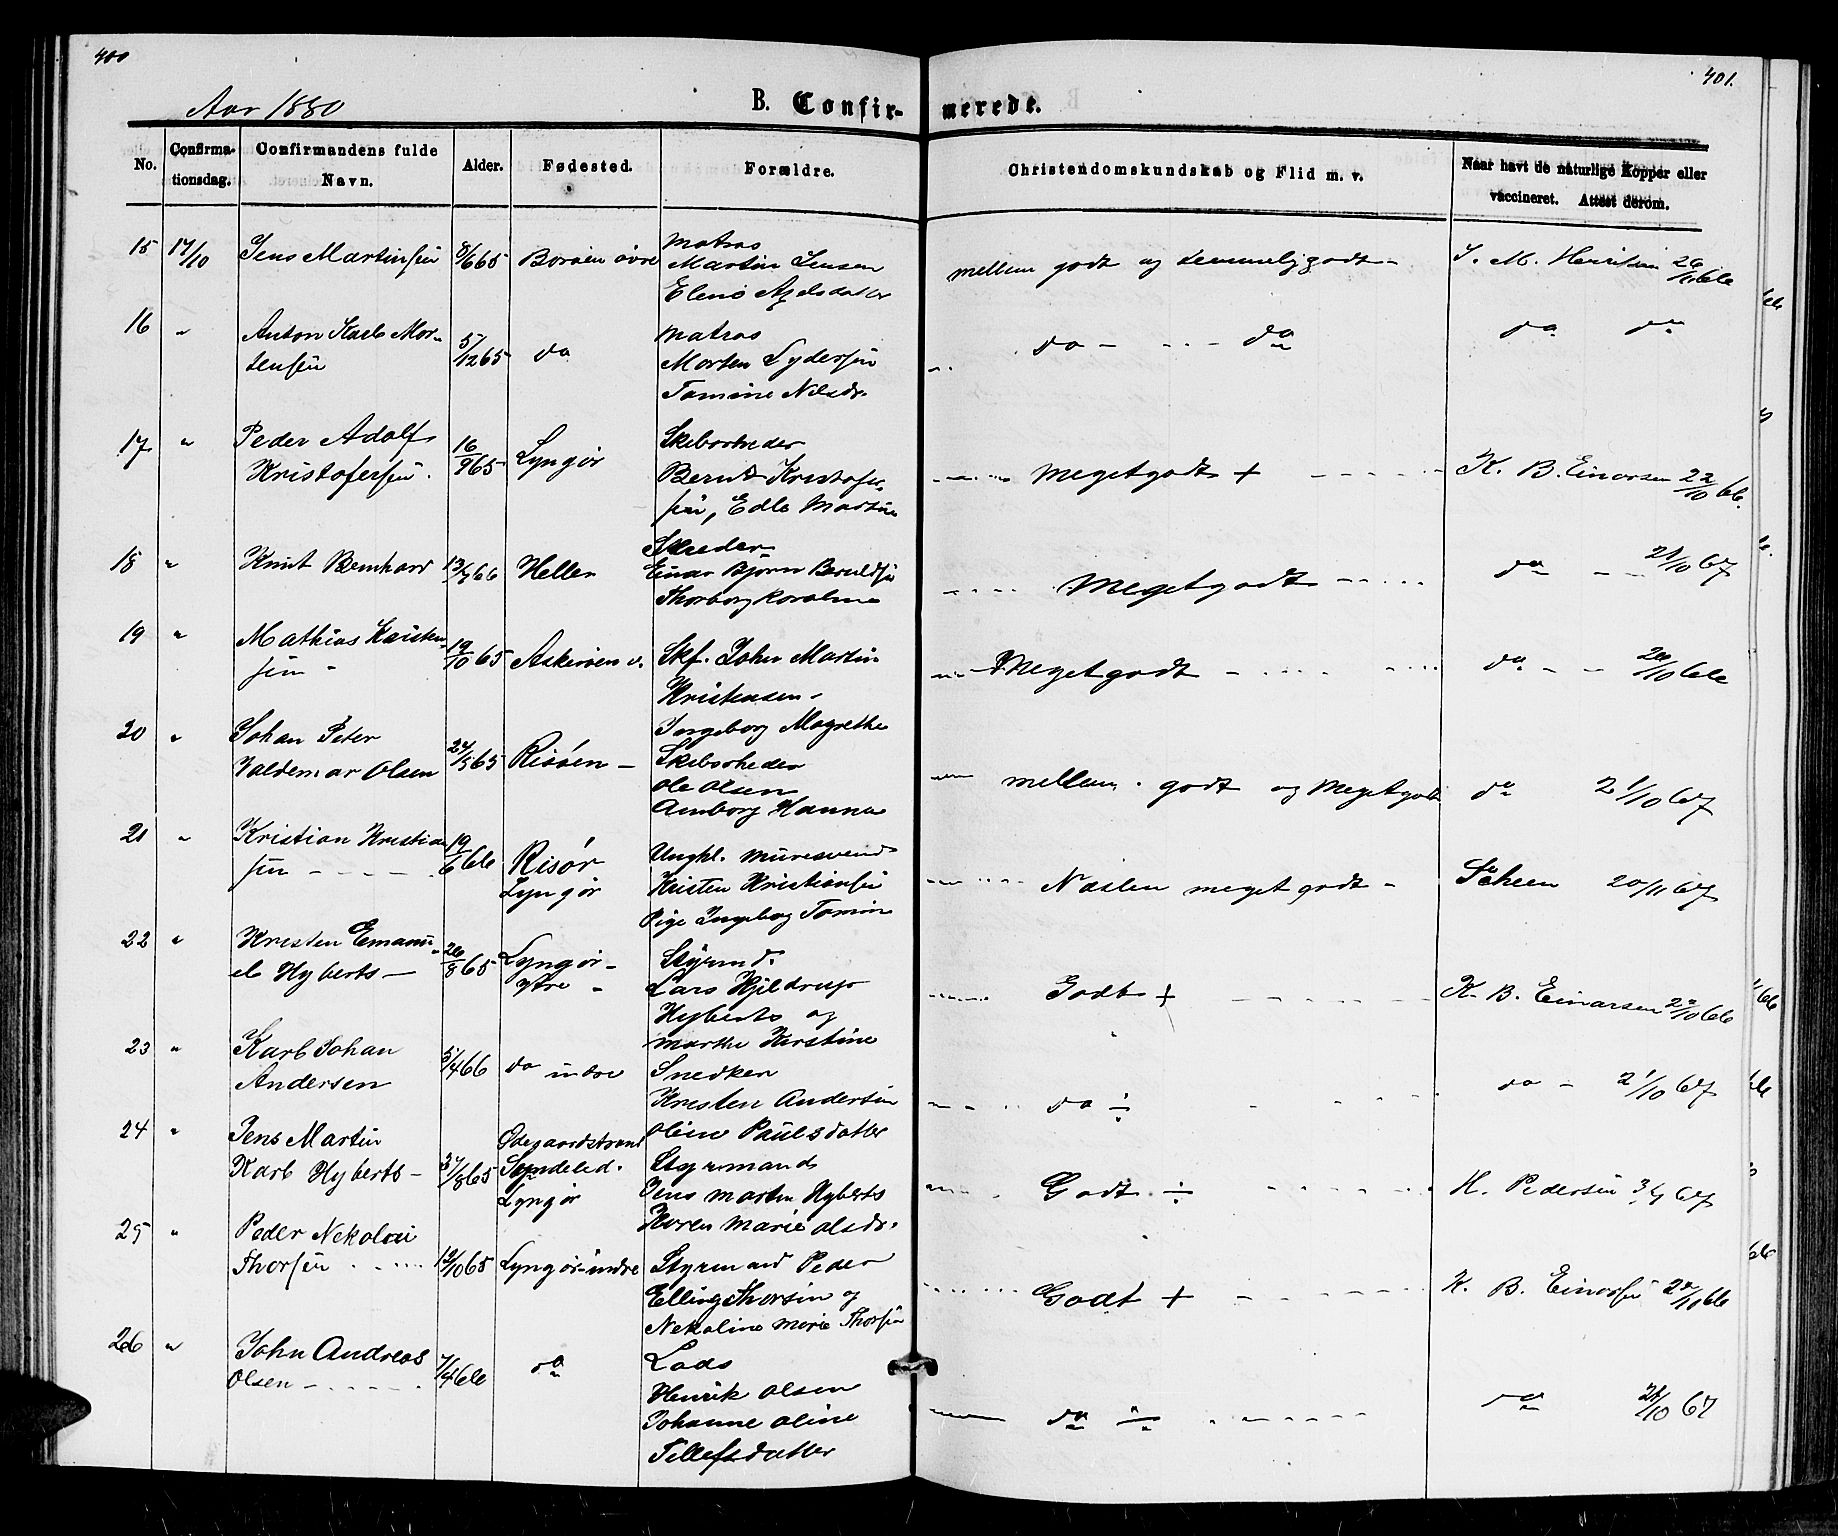 400
401.
Aar 1880
B. Confir-
merede.
No.
Confirma-
tionsdag.
Confirmandens fulde
Navn.
Alder.
Fødested.
Forældre.
Christendomskundskab og Flid m. v.
Naar havt de naturlige Kopper eller
vaccineret. Attest derom.
15 17/10 Jens Martinsen 8/6 65 Borøen øvre Matros
Martin Jensen
mellem godt og temmelig godt - J. M. 26/10 66
16 " Anton Karl Mor-
tensen 5/12 65 do Matros
Morten Lydersen
Tomine Nilsdr.
do - - - - do
do do
17 " Peder Adolf
Kristofersen. 16/9 65 Lyngør Skibsreder
Bernt Kristofer-
sen, Edle Martine
Meget godt + - - - - K. B. Einarsen 22/10 66.
18 " Knut Bernhard 13/7 66 Hellen
Einar Bjørn Beruldsen
Thorborg Karoline
Meget godt - - - - - do - - 21/10 67
19 " Mathias Kristen-
sen - 19/10 65 Askerøen v. Skf. John Martin
Kristensen -
Ingeborg Magrethe
Meget godt - - - - do - - 20/10 66
20 " Johan Peter
Valdemar Olsen 24/5 65 Risøen - Skibsreder
Ole Olsen
Amborg Hanna
mellem godt og Meget godt do 21/10 67
21 " Kristian Kristian
sen - - - - 19/6 66 Risør
Lyngør
Ungkl. Muresvend
Kristen Kristiansen
Pige Ingeborg Tomine
Næsten meget godt - Scheen 20/11 67
22 " Kristen Emanu-
el Hyberts - 26/8 65 Lyngør -
ytre -
Styrmd.
Lars Hjeldrup
Hyberts og
Marthe Kirstine
Godt + - - - - K. B. Einarsen 22/10 66
23 " Karl Johan
Andersen 5/4 66 do indre Snedker
Kristen Andersen
Oline Paulsdatter
do ÷ do - 21/10 67
24 " Jens Martin
Karl Hyberts - 3/8 65 Ødegaardstrand
Søndeled.
Lyngør
Styrmand
Jens Martin Hyberts
Karen Marie Olsdr.
Godt ÷ - - - - H. Pedersen 67
25 " Peder Nekolai
Thorsen - - - - 19/10 65 Lyngør indre Styrmand Peder
Elling Thorsen og
Nekoline Marie Thorsen
Godt + - - - - K. B. Einarsen 22/10 66
26 " John Andreas
Olsen - - - - 7/4 66 do Lods
Henrik Olsen
Johanne Oline
Tellefsdatter
do ÷ - - - - do 21/10 67